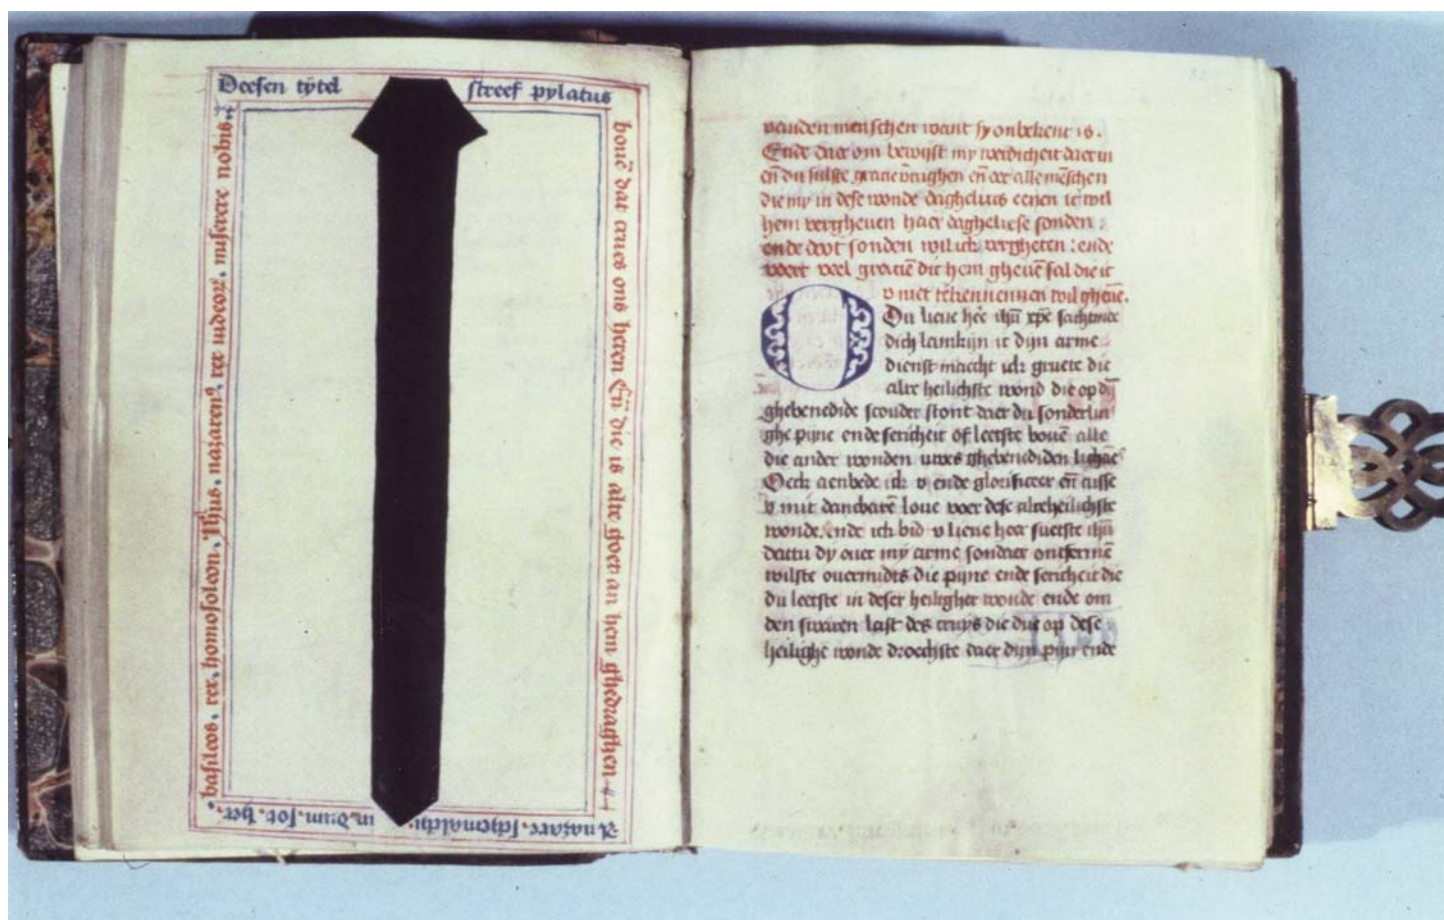 Deesen tytel streef pylatus
bouē dat crues ons heren Eñ die is alte goet an hem ghedraghen
in dum sot her
basileos, rex, homosoleon, Jhus, nazarenꝰ, rex iudeoꝝ, miserere nobis
vanden menschen want sy onbekent is.
Ende daer om bewijst my werdicheit daer in
eñ du sulste gracie vraghen eñ oer alle mēschen
die my in dese wonde daghelics eeren ic wil
hem vergheuen haer daghelicse sonden :
ende doot sonden wil ich vergheten : ende
voert voel gratiē die hem gheuē sal die ic
v niet te kennen wil gheuē.
Ou lieue hēe ihū xpē sachtmoe
dich lamkijn ic dijn arme
dienst maecht ich gruete die
alre heilichste wond die op dȳ
ghebenedide scouder stont daer du sonderlin
ghe pijne ende sericheit of leetste bouē alle
die ander wonden uwes ghebenediden lichāē
Oeck aenbede ich v ende glorificeer eñ cusse
v mit danchaꝛē loue voer dese alreheilichste
wonde. ende ich bid v lieue heer suetste ihū
dattu dy ouer my arme sondaer ontfermē
wilste ouermidts die pijne ende sericheit die
du leetste in deser heiligher wonde ende om
den swaren last des cruys die du op dese
heilighe wonde droechste daer dijn pijn ende